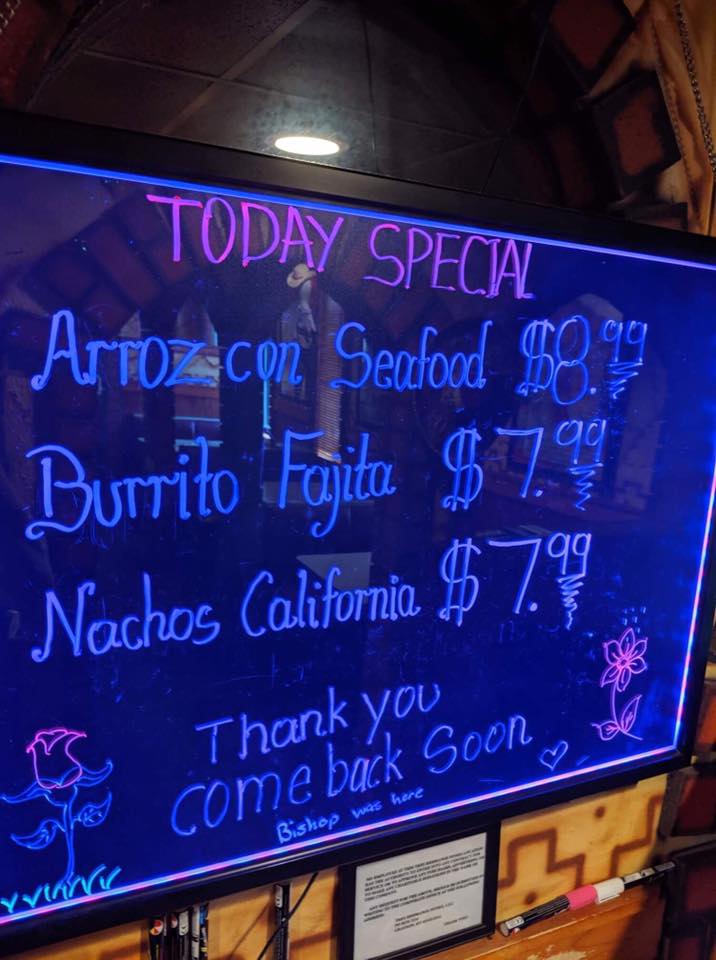 TODAY SPECIAL
Arroz con Seafood $8.99
Burrito Fajita $7.99
Nachos California $7.99
Thank you
come back Soon
Bishop was here